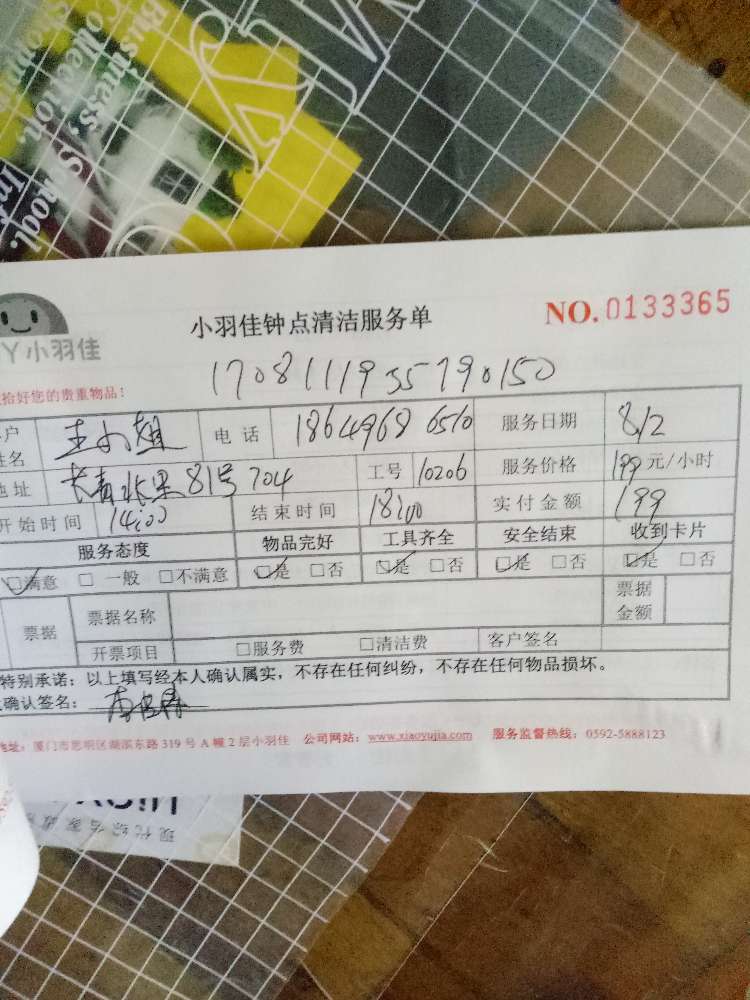 Business, School,
Collection,
小羽佳钟点清洁服务单
NO.0133365
Y小羽佳
拾好您的贵重物品：
17081119355790150
户
姓名
王小姐
电话
18649686510
服务日期
8/2
地址
81号704
工号
10206
服务价格
199元/小时
开始时间
14:00
结束时间
18:00
实付金额
199
服务态度
物品完好
工具齐全
安全结束
收到卡片
□满意 □一般 □不满意
□是 □否
□是 □否
□是 □否
□是 □否
票据
票据名称
票据金额
开票项目
□服务费 □清洁费
客户签名
特别承诺：以上填写经本人确认属实，不存在任何纠纷，不存在任何物品损坏。
确认签名：
地址：厦门市思明区湖滨东路319号A幢2层小羽佳 公司网站：www.xiaoyujia.com 服务监督热线：0592-5888123
现代综合家政